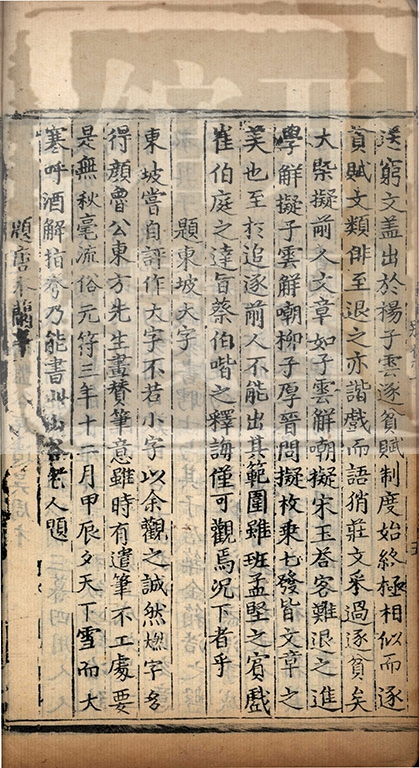 送窮文蓋出於楊子雲逐貧賦制度始終極相似而逐
貧賦文類俳至退之亦諧戲而語稍莊文采過逐貧矣
大槩擬前人文章如子雲解嘲擬宋玉荅客難退之進
學解擬子雲解嘲柳子厚晉問擬枚乗七發皆文章之
美也至於追逐前人不能出其範圍雖班孟堅之賓戲
崔伯庭之達旨蔡伯喈之釋誨僅可觀焉况下者乎
題東坡大字
東坡嘗自評作大字不若小字以余觀之誠然然大字多
得顔魯公東方先生畫賛筆意雖時有遣筆不工處要
是無秋毫流俗元符三年十二月甲辰夕天下雪而大
寒呼酒解指拳乃能書山谷老人題
題唐本蘭